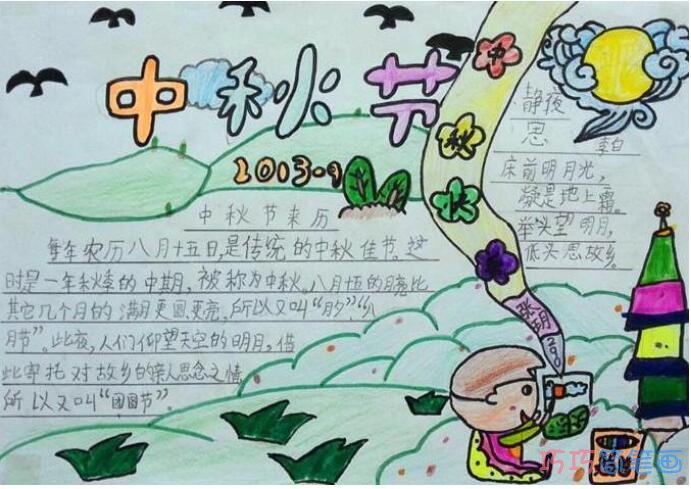 中秋节
2013-9
中秋节来历
每年农历八月十五日，是传统的中秋佳节。这
时是一年秋季的中期，被称为中秋。八月十五的月亮比
其它几个月的满月更圆更亮，所以又叫“月夕”“八
月节”。此夜，人们仰望天空的明月，借
此寄托对故乡的亲人思念之情
所以又叫“团圆节”
中
秋
快
乐
静夜
思
李白
床前明月光，
疑是地上霜。
举头望明月，
低头思故乡。
巧巧简笔画